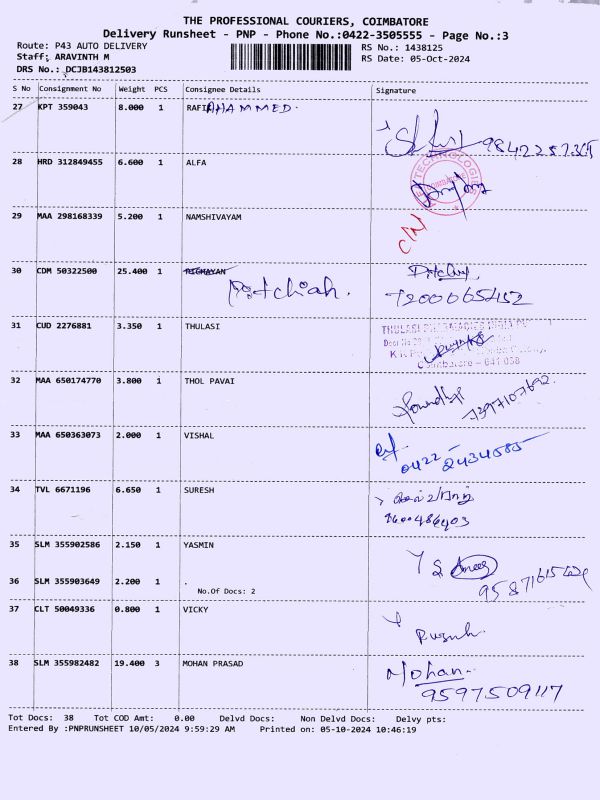 THE PROFESSIONAL COURIERS, COIMBATORE
Delivery Runsheet - PNP - Phone No.:0422-3505555 - Page No.:3
Route: P43 AUTO DELIVERY RS No.: 1438125
Staff: ARAVINTH M RS Date: 05-Oct-2024
DRS No.: DCJB143812503
S No Consignment No Weight PCS Consignee Details Signature
27 KPT 359043 8.000 1 RAFI AHAMMED.
28 HRD 312849455 6.600 1 ALFA
TECHNOLOGIES
29 MAA 298168339 5.200 1 NAMSHIVAYAM
C/N
30 CDM 50322500 25.400 1
Pitchiah. 7200065452
31 CUD 2276881 3.350 1 THULASI
THULASI PHARMACIES INDIA
Coimbatore - 641 038
32 MAA 650174770 3.800 1 THOL PAVAI
7397107692
33 MAA 650363073 2.000 1 VISHAL
0422 2434585
34 TVL 6671196 6.650 1 SURESH
35 SLM 355902586 2.150 1 YASMIN
36 SLM 355903649 2.200 1 .
No.Of Docs: 2
37 CLT 50049336 0.800 1 VICKY
38 SLM 355982482 19.400 3 MOHAN PRASAD Mohan
9597509117
Tot Docs: 38 Tot COD Amt: 0.00 Delvd Docs: Non Delvd Docs: Delvy pts:
Entered By :PNPRUNSHEET 10/05/2024 9:59:29 AM Printed on: 05-10-2024 10:46:19